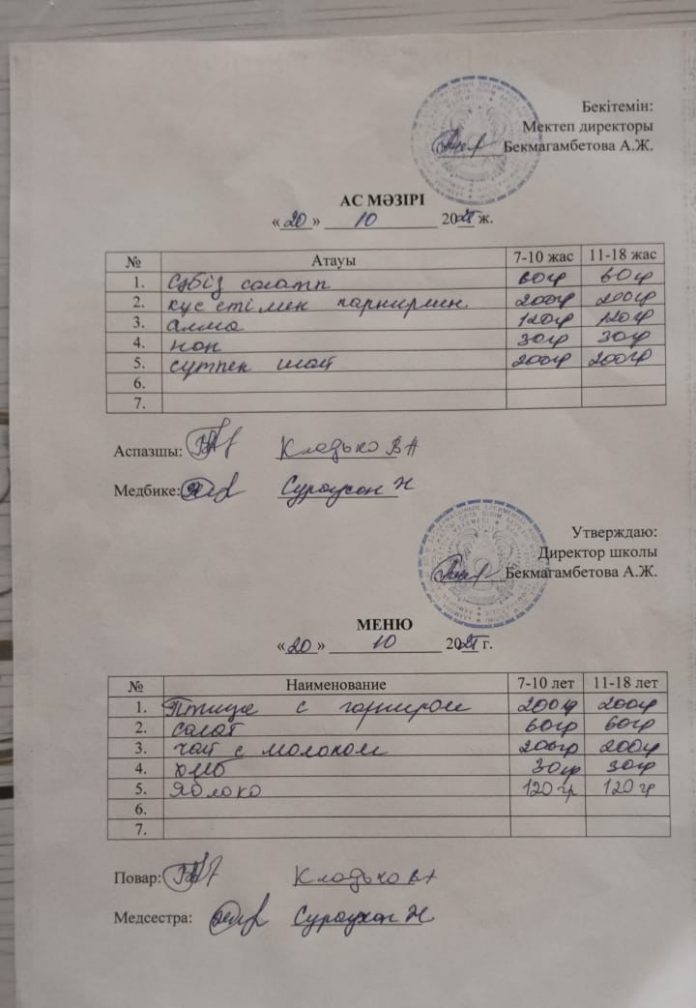 Бекітемін:
Мектеп директоры
Бекмагамбетова А.Ж.
АС МӘЗІРІ
«20» 10 20 ж.
№ Атауы 7-10 жас 11-18 жас
1. Сәбіз салатп 60гр 60гр
2. құс етімен гарнирмен 200гр 200гр
3. алма 120гр 120гр
4. нан 30гр 30гр
5. сүтпен шай 200гр 200гр
6.
7.
Аспазшы: Кладько В А
Медбике:
Утверждаю:
Директор школы
Бекмагамбетова А.Ж.
МЕНЮ
«20» 10 20 г.
№ Наименование 7-10 лет 11-18 лет
1. Птица с гарниром 200гр 200гр
2. салат 60гр 60гр
3. чай с молоком 200гр 200гр
4. хлеб 30гр 30гр
5. Яблоко 120 гр 120 гр
6.
7.
Повар: Кладько В А
Медсестра: